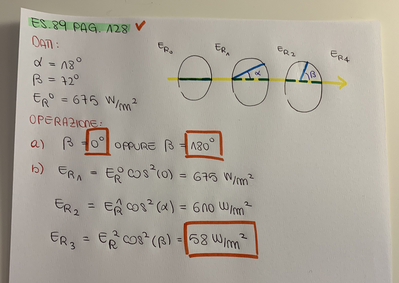 ES. 89 PAG. 128 ✓
DATI:
α = 18°
β = 72°
E_R^0 = 675 W/m²
E_R0 E_R1 E_R2 E_R4
α β
OPERAZIONE:
a) β = 0° OPPURE β = 180°
b) E_R1 = E_R^0 cos²(0) = 675 W/m²
E_R2 = E_R^1 cos²(α) = 610 W/m²
E_R3 = E_R^2 cos²(β) = 58 W/m²